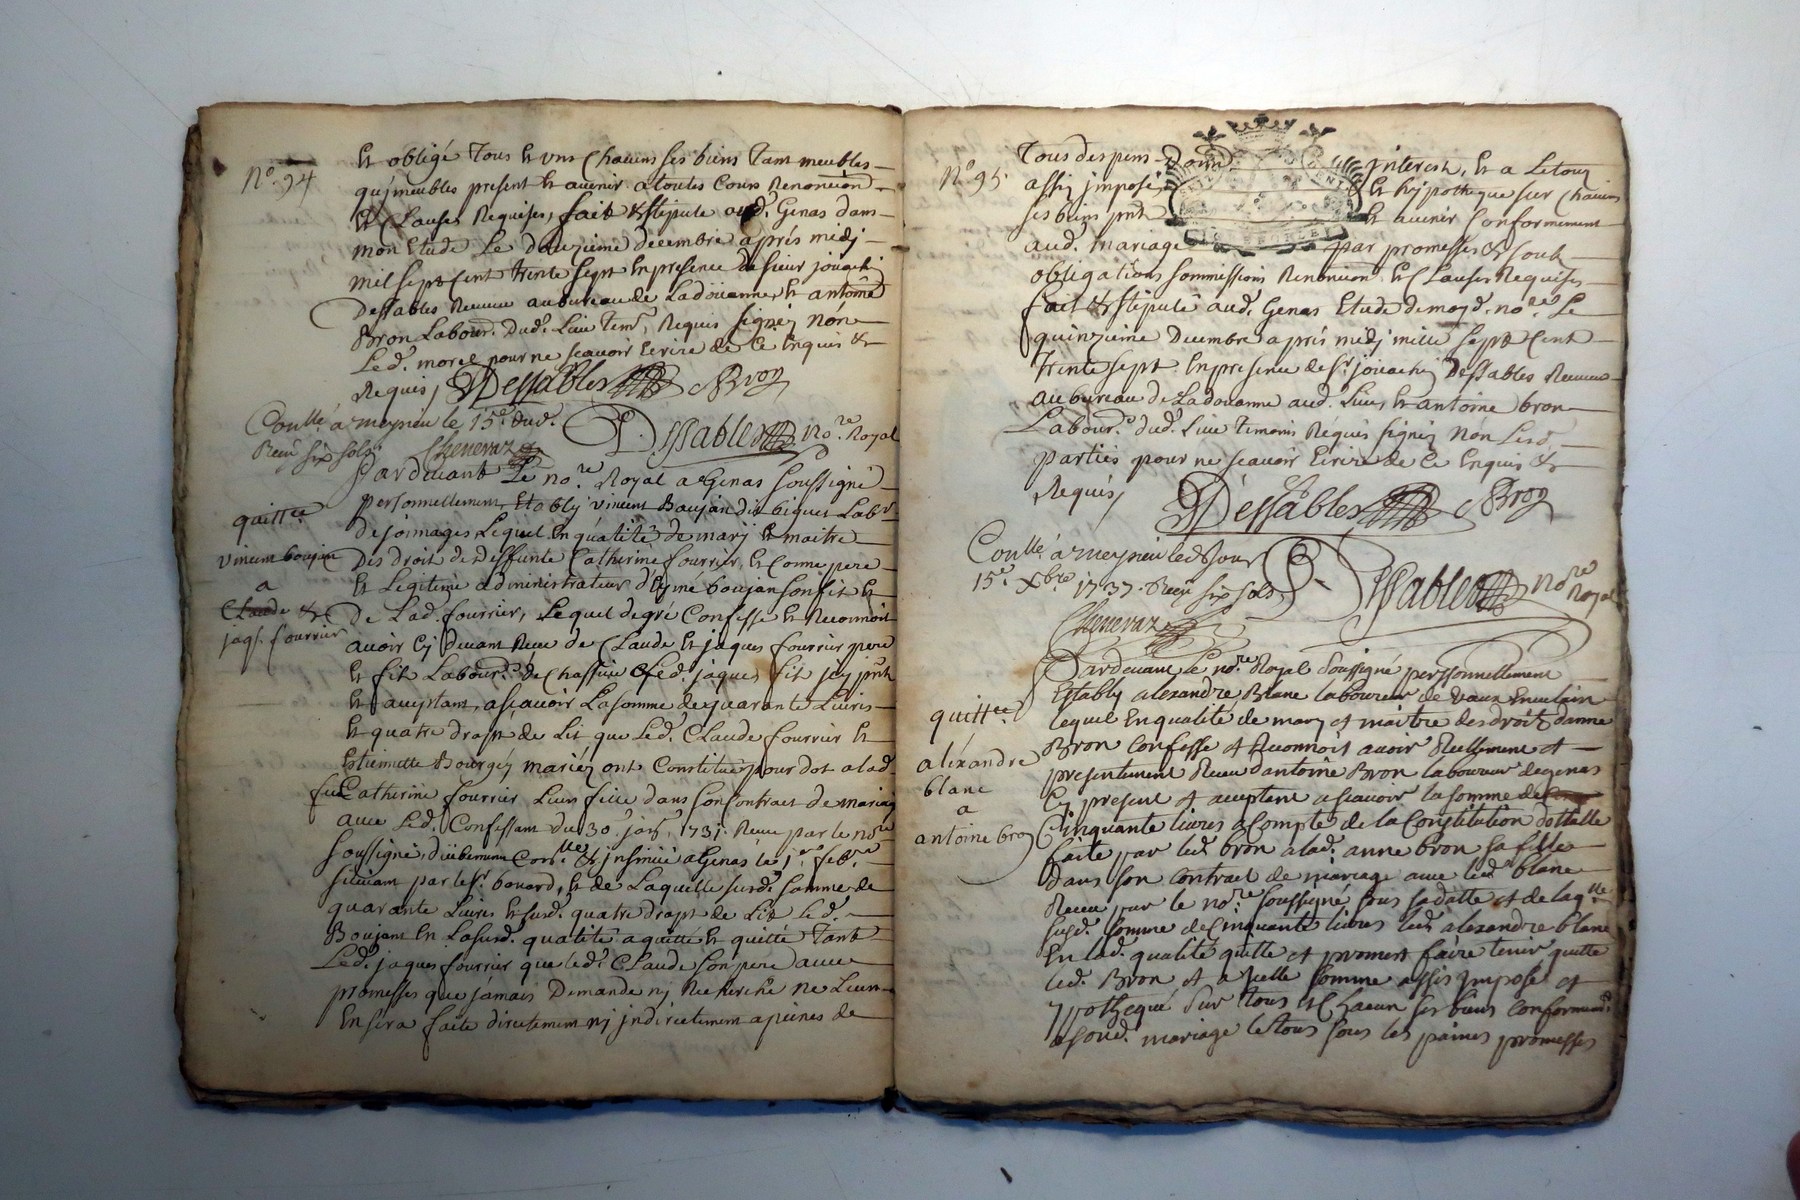 N.º 94
Et obligé tous et uns chacuns ses biens tant meubles
qu'jmeubles present et avenir a toutes Cours Renonciõn
et Clauses Requises, fait & stipulé aud. Genas dans
mon Etude le douzieme decembre aprés midj
mil sept cent trente sept En presence de sieur joüachj
Dessables Receveur au bureau de La doüanne, et antoine
Bron Labour. dud. Lieu tem. Requis signéz Nõn
Led. morel pour ne scavoir Ecrire de Ce Enquis &
Requis, Dessables Bron
Conllé. á meyzieu le 15e dud.
Reçu six sols. Cheneraz
Dessables No.re Royal
Pardevant Le no.re Royal a Genas soussigné
quitt.ce
personnellement Etably vincent Boujan dit biguet Lab.r
de jonnages Lequel En qualité de marj & maitre
vincent boujan
Des droit de deffunte Catherine fourrier, et comme pere
a
et Legitime administrateur d'Eymé boujan son fit &
Claude &
De Lad. fourrier, Lequel de gré Confesse et Reconnoit
jaqs. fourrier
avoir Cy devant Receu de Claude et jaques fourrier pere
et fit Labour.rs de Chassieu & Led. jaques fit jcy pnt
et acceptant, ascavoir La somme de quarante Livres
et quatre drapt de Lit que Led. Claude fourrier et
Estiennette Bourgey mariéz ont Constitué pour dot a lad.
fue Catherine fourrier Leur fille dans son Contract de mariag
avec Led. Confessant du 30.e janr. 1731. Receu par le no.re
soussigné, düebement Con.llé & jnsinüé a Genas le 1.er feb.er
suivant par le Sr. bouard, & de Laquelle surd. somme de
quarante Livres et surd. quatre drapt de Lit Led.
Boujant En La surd. qualité a quitté et quitte tant
Led. jaques fourrier que Led. Claude son pere avec
promesses que jamais Demande nj Recherche ne Leur
En sera faite directement nj jndirectement a peines de
N.º 95.
tous despens Dom interest, & a Le touz
assis jmposé et hypotheque sur Chacuns
ses biens pnt et avenir Conformement
aud. mariage par promesses &
obligations sommissions Renonciõn et Clauses Requises
fait & stipulé aud. Genas Etude de moyd. no.re Le
quinzieme Decembre aprés midj mille sept Cent
trente sept En presence de Sr. joüachij Dessables Receveur
au bureau de La douanne aud. Lieu, et antoine bron
Labour.r dud. Lieu temoins Requis signéz Non Lesd.
parties pour ne scavoir Ecrire de Ce Enquis &
Requis, Dessables Bron
Conllé. á meyzieu led. Jour
15e Xbre 1737. Reçu six sols.
Cheneraz
Dessables no.re Royal
Pardevant le no.re Royal Soussigné perssonnellement
Estably alexandre Blanc laboureur de vaux Envelain
quitt.ce
lequel En qualité de mary et maitre des droits danne
alexandre
Bron Confesse et Reconnoit avoir Reellement et
blanc
presentement Receu d'antoine Bron laboureur de genas
a
Cy present et acceptant ascavoir la somme de
antoine bron
Cinquante livres a Compte de la Constitution dottalle
faite par led. bron a lad. anne bron sa fille
Dans son Contract de mariage avec led. blanc
Receu par le no.re soussigné sous sa datte et de laq.lle
susd. somme de Cinquante livres led. alexandre blanc
En lad. qualité quitte et promest faire tenir quitte
led. Bron et a jcelle somme assis jmposé et
ypothequé sur tous et Chacun ses biens Conformem.t
a soud. mariage le tous sous les paines promesses